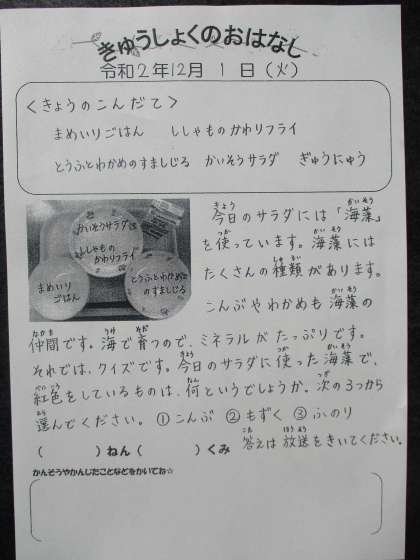 きゅうしょくのおはなし
令和2年12月 1日(火)
<きょうのこんだて>
まめいりごはん ししゃものかわりフライ
とうふとわかめのすましじる かいそうサラダ ぎゅうにゅう
かいそうサラダ
ししゃもの
かわりフライ
まめいり
ごはん
とうふとわかめの
すましじる
今日のサラダには「海藻」
を使っています。海藻には
たくさんの種類があります。
こんぶやわかめも海藻の
仲間です。海で育つので、ミネラルがたっぷりです。
それでは、クイズです。今日のサラダに使った海藻で、
紅色をしているものは、何というでしょうか。次の3つから
選んでください。①こんぶ ②もずく ③ふのり
( )ねん( )くみ 答えは放送をきいてください。
かんそうやかんじたことなどをかいてね☆